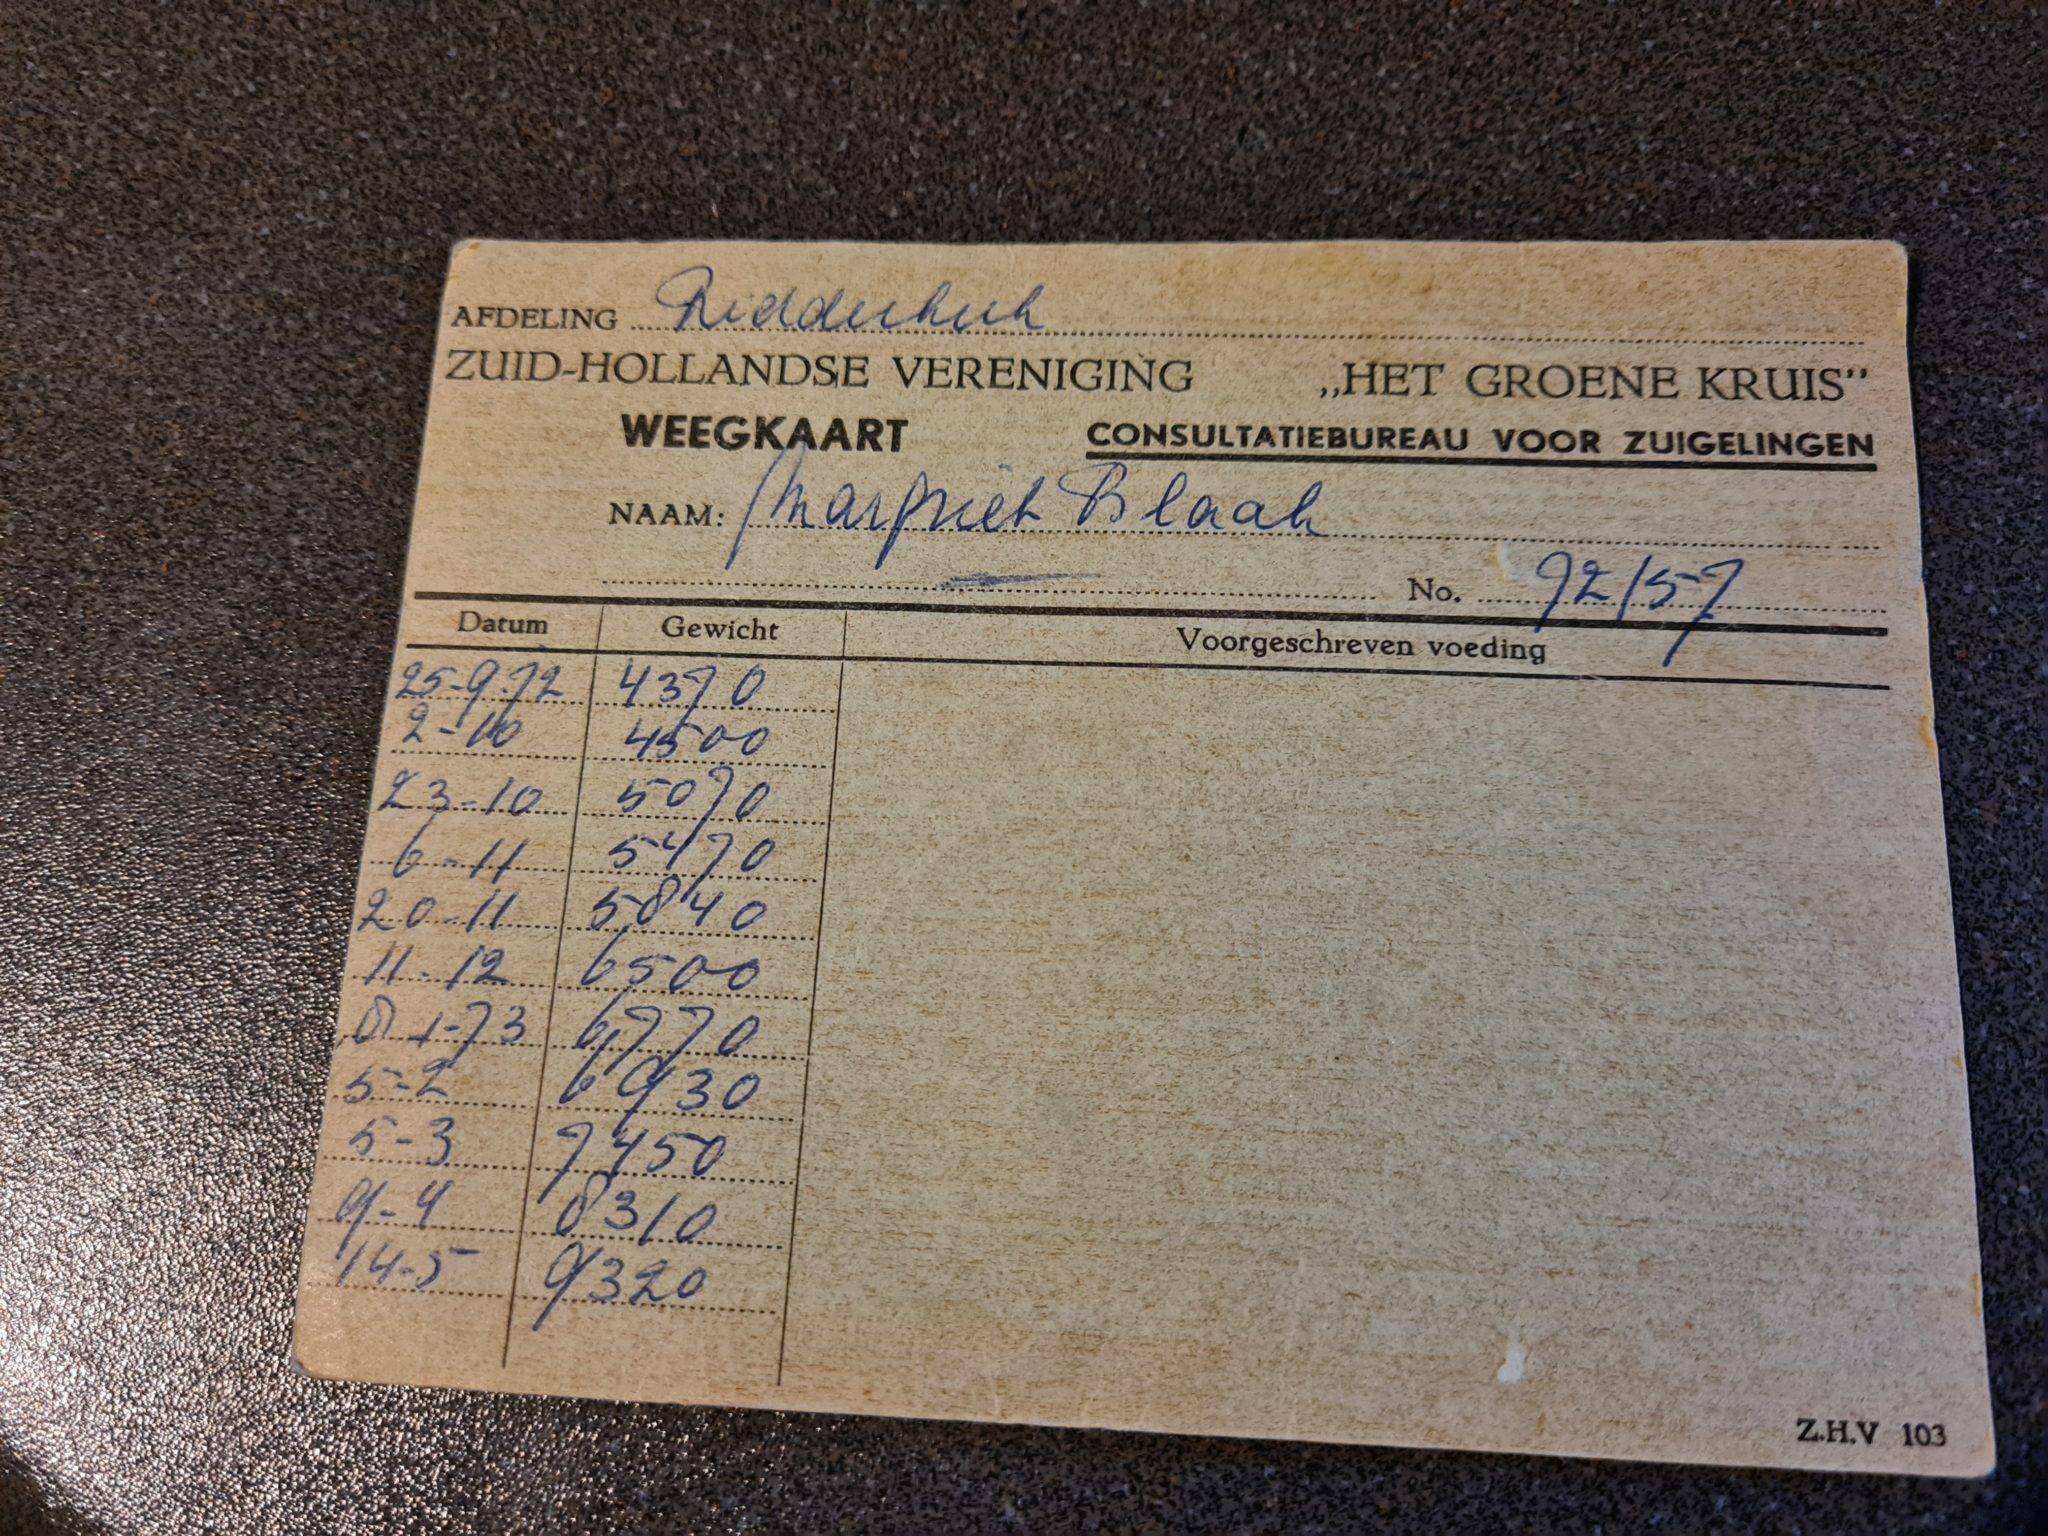 AFDELING Ridderkerk
ZUID-HOLLANDSE VERENIGING „HET GROENE KRUIS”
WEEGKAART CONSULTATIEBUREAU VOOR ZUIGELINGEN
NAAM: Margriet Blaak
No. 72/57
Datum Gewicht Voorgeschreven voeding
25-9-72 4370
2-10 4500
23-10 5070
6-11 5470
20-11 5840
11-12 6500
8-1-73 6770
5-2 6930
5-3 7450
9-4 8310
14-5 9320
Z.H.V 103